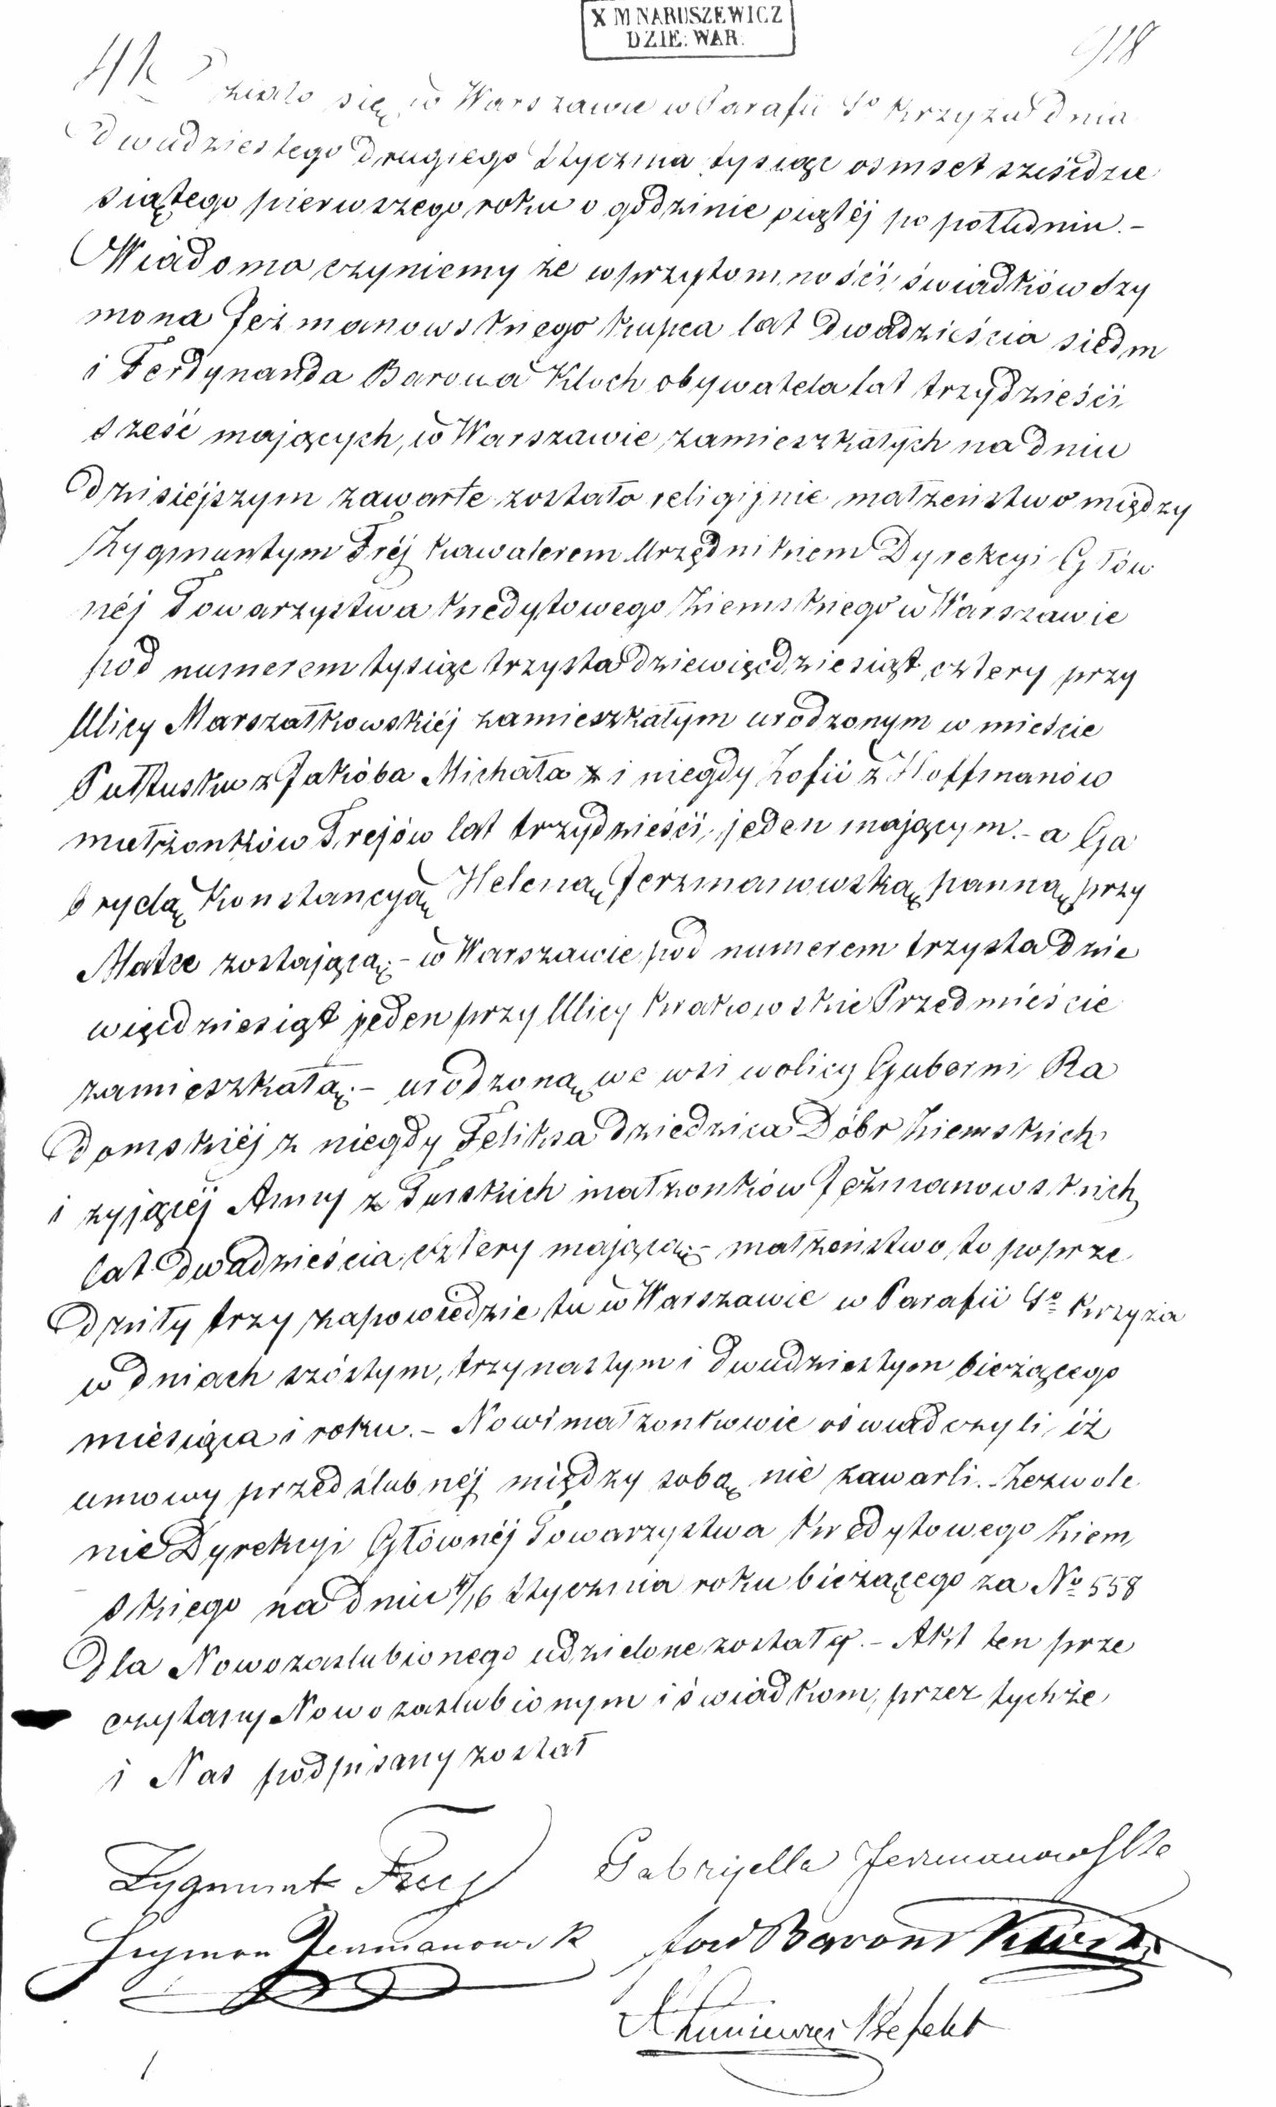 X M NARUSZEWICZ
DZIE: WAR.
918
41.
Działo się w Warszawie w Parafii So Krzyża dnia
dwudziestego drugiego Stycznia tysiąc ośmset sześćdzie
siątego pierwszego roku o godzinie piątéj po południu. -
Wiadomo czyniemy że w przytomności świadków Szy
mona Jeżmanowskiego kupca lat dwadzieścia siedm
i Ferdynanda Barona Kloch obywatela lat trzydzieści
sześć mających, w Warszawie zamieszkałych na dniu
dzisiéjszym zawarte zostało religijnie małżeństwo między
Zygmuntym Fréj kawalerem Urzędnikiem Dyrekcyi Głów
néj Towarzystwa Kredytowego Ziemskiego w Warszawie
pod numerem tysiąc trzysta dziewięćdziesiąt cztery przy
Ulicy Marszałkowskiéj zamieszkałym urodzonym w mieście
Pułtusku z Jakóba Michała i niegdy Zofii z Hoffmanów
małżonków Frejów lat trzydzieści jeden mającym. - a Ga
brydą Konstancyą Heleną Jerzmanowską panną przy
Matce zostającą, - w Warszawie pod numerem trzysta dzie
więćdziesiąt jeden przy Ulicy Krakowskie Przedmieście
zamieszkałą; - urodzoną we wsi wolicy Guberni Ra
domskiéj z niegdy Feliksa dziedzica Dóbr Ziemskich
i żyjącéj Anny z Turskich małżonków Jeżmanowskich
lat dwadzieścia cztery mającą; - małżeństwo to poprze
dziły trzy zapowiedzie tu w Warszawie w Parafii So Krzyża
w dniach szóstym, trzynastym i dwudziestym bieżącego
miesiąca i roku. - Nowi małżonkowie oświadczyli iż
umowy przedślubnéj między sobą nie zawarli. - Zezwole
nie Dyrekcyi Głównéj Towarzystwa Kredytowego Ziem
skiego na dniu 4/16 Stycznia roku bieżącego za No 558
dla Nowozaslubionego udzielone zostały. - Akt ten prze
czytany Nowozaslubionym i świadkom, przez tychże
i Nas podpisany został
Zygmunt Frey Gabryella Jerzmanowska
Szymon Jerzmanowsk Baron